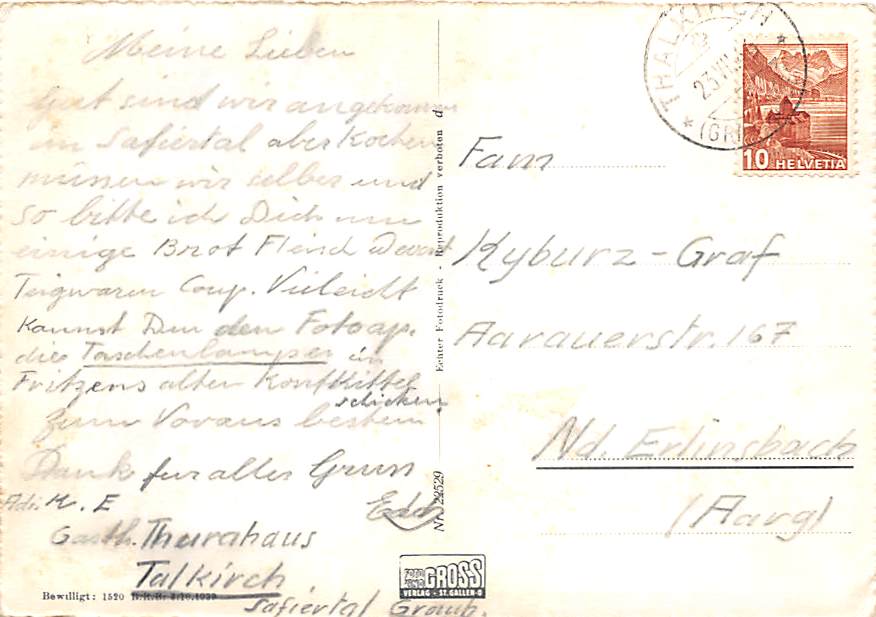 Meine Lieben
Gut sind wir angekommen
im Safiertal aber Kochen
müssen wir selber und
so bitte ich Dich um
einige Brot Fleisch
Teigwaren Coup. Vieleicht
kannst Du den Fotoap.
die Taschenlampe in
Fritzens alten Konfkittel
schicken
Zum Voraus besten
Dank für alles Gruss
Edi
Adr. K. E
Gasth. Thurahaus
Talkirch
Safiertal Graub.
Bewilligt: 1520 B.R.B. 3.10.1939
Nr. 22529
Echter Fotodruck - Reproduktion verboten d
FOTO GROSS
VERLAG - ST. GALLEN-O
THALKIRCH
23.VII
(GR)
10 HELVETIA
Fam
Kyburz-Graf
Aarauerstr. 167
Nd. Erlinsbach
(Aarg)